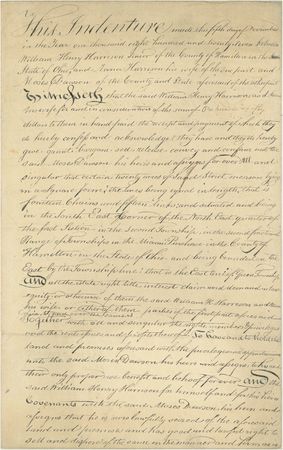 This Indenture made this fifth day of November
in the Year one thousand eight hundred and twenty between
William Henry Harrison Senior of the County of Hamilton in the
State of Ohio, and Anna Harrison his wife of the one part and
Moses Dawson of the County and State aforesaid of the other
Witnesseth that the said William Henry Harrison and
his wife for and in consideration of the sum of
dollars to them in hand paid the receipt and payment of which they
do hereby confess and acknowledge they have and by these presents
give grant bargain sell release convey and confirm unto the
said Moses Dawson his heirs and assigns for ever All and
singular that certain twenty acres of land Street
in a square form, the lines being equal in length, that is
fourteen Chains and fifteen links and situated and being
in the South East Corner of the North East quarter of
the first Section in the Second Township in the second fractional
Range of townships in the Miami Purchase in the County of
Hamilton in the State of Ohio and being bounded on the
East by the Township line that is the East line of
And all the estate right title interest claim and demand in law
equity or otherwise of them the said William H. Harrison and
his wife or either of them parties of the first part aforesaid
Together with all and singular the rights members privileges
To have and to hold the
land and premises aforesaid with the privileges and appurtenances
unto the said Moses Dawson his heirs and assigns to
their only proper use benefit and behoof forever and the
said William Henry Harrison for himself and for his heirs
Covenants with the said Moses Dawson his heirs and
assigns that he is now lawfully seized of the aforesaid
land and premises and has good and lawful right to
sell and dispose of the same in the manner and form as is